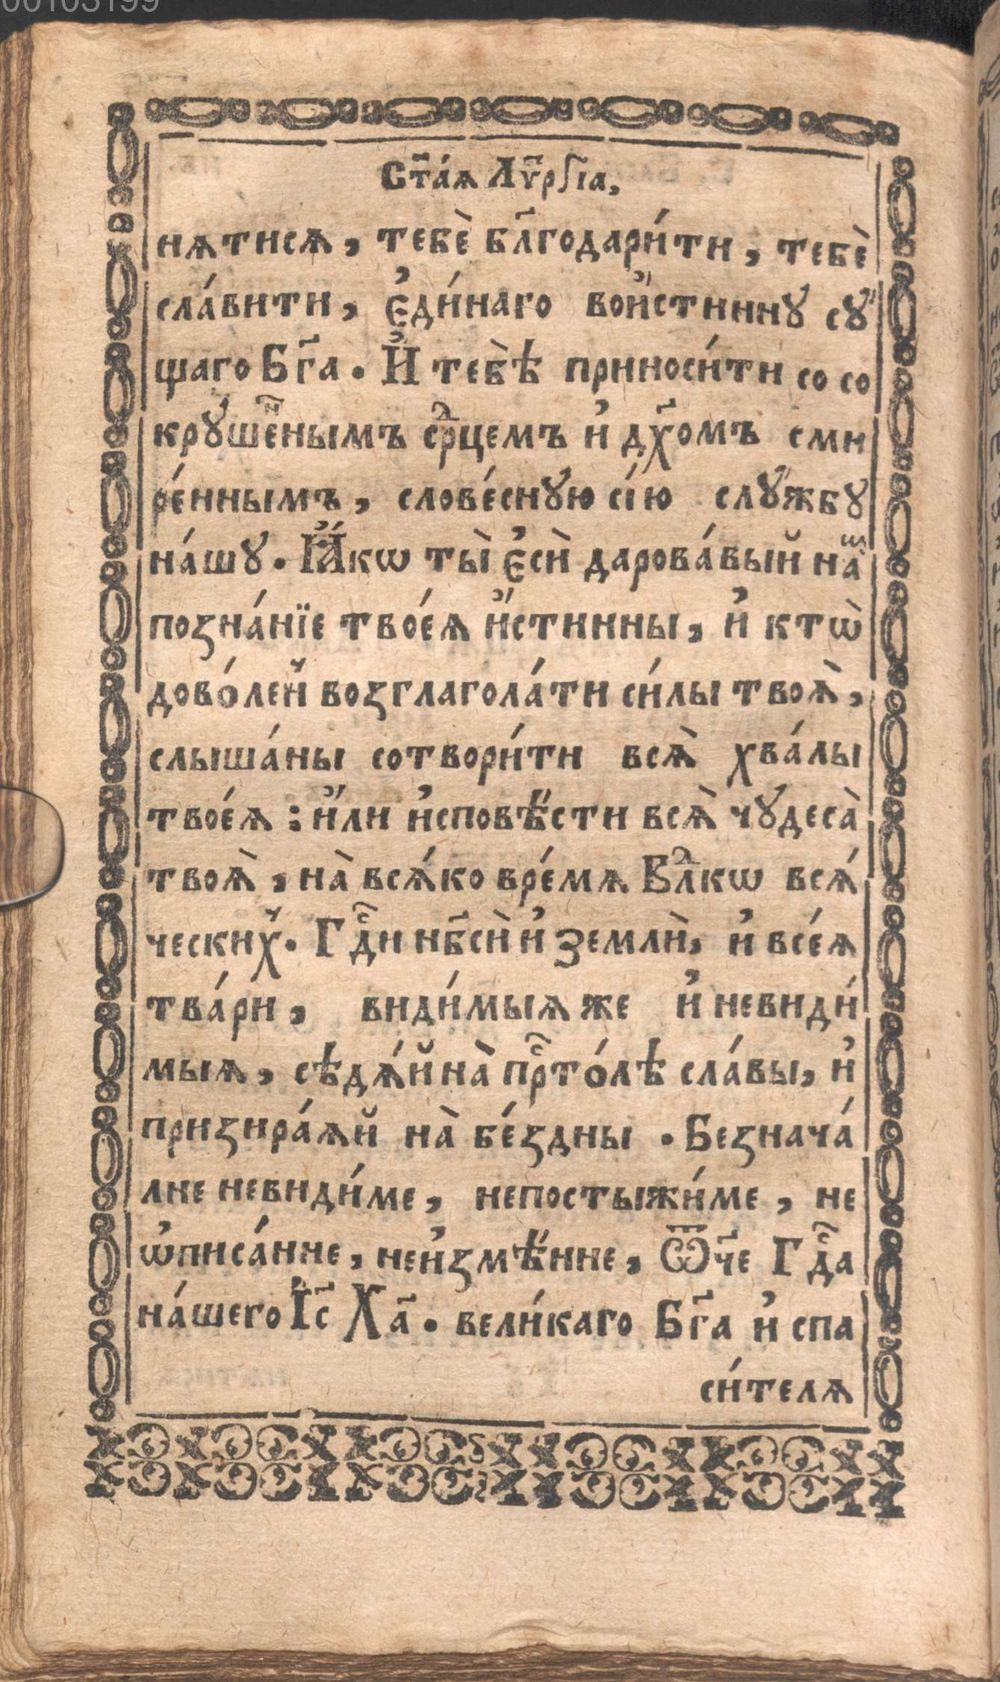 00103199
Ст҃а́ѧ Лүⷬ҇гіа,
нѧтисѧ, тебѐ бл҃годари́ти, тебѐ
сла́вити, є҆ди́наго вои́стинну сꙋ́
щаго Бг҃а. И҆ тебѣ̀ приноси́ти со со
крꙋше́ⷩ҇нымъ срⷣцемъ и҆ дх҃омъ сми
ре́ннымъ, слове́снꙋю сїю̀ слꙋ́жбꙋ
на́шꙋ. Ꙗ҆́кѡ ты̀ є҆сѝ дарова́вый на́ⷨ
позна́нїе твоеѧ̀ и҆́стинны, и҆ ктѡ̀
дово́лей возглагола́ти си́лы твоѧ̀,
слыша́ны сотвори́ти всѧ̀ хва́лы
твоеѧ̀: и҆́ли и҆сповѣ́сти всѧ̀ чꙋдеса̀
твоѧ̀, на̀ всѧ́ко вре́мѧ Влⷣкѡ всѧ́
ческих̾. Гдⷭ҇и нб҃сѝ и҆ землѝ, и҆ всеѧ̀
тва́ри, види́мыѧ же и҆ невиди́
мыѧ, сѣдѧ́й на̀ прⷭ҇то́лѣ сла́вы, и҆
призира́ѧй на̀ бе́здны. Безнача́
лне невиди́ме, непостыжи́ме, не
ѡ҆писа́нне, неи҆змѣ́нне, Ѿч҃е Гдⷭ҇а
на́шего І҆с҃ Ха҃. вели́каго Бг҃а и҆ спа
си́телѧ